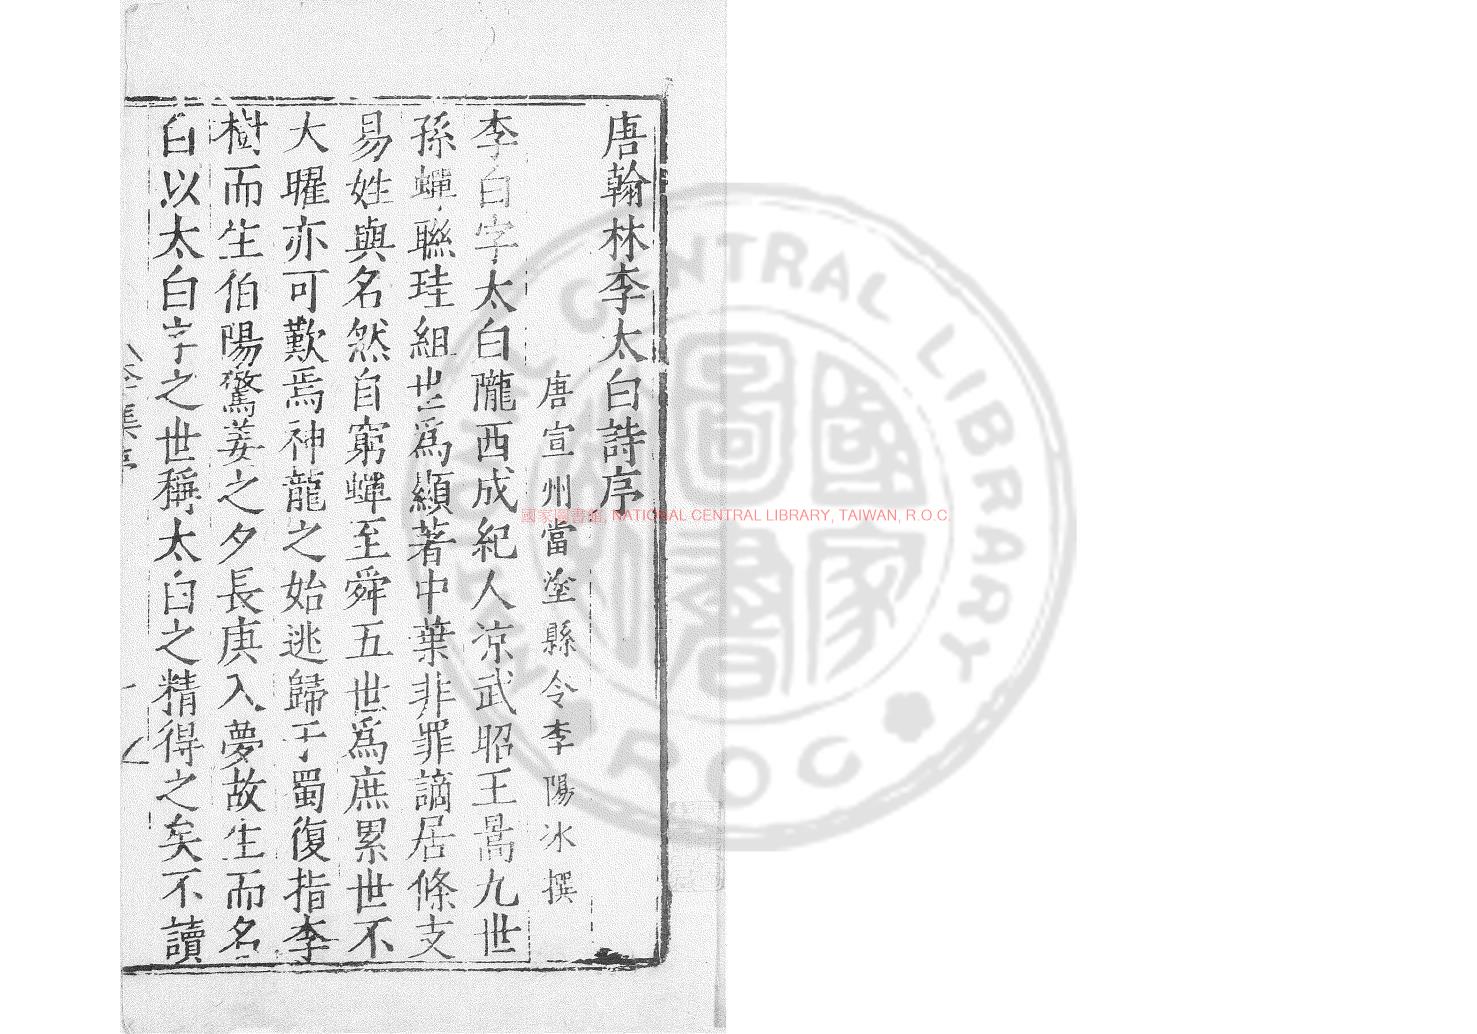 唐翰林李太白詩序
唐宣州當塗縣令李陽冰撰
李白字太白隴西成紀人凉武昭王暠九世
孫蟬聯珪組世爲顯著中葉非罪謫居條支
易姓與名然自窮蟬至舜五世爲庶累世不
大曜亦可歎焉神龍之始逃歸于蜀復指李
樹而生伯陽驚姜之夕長庚入夢故生而名
白以太白字之世稱太白之精得之矣不讀
國家圖書館, NATIONAL CENTRAL LIBRARY, TAIWAN, R.O.C.
NATIONAL CENTRAL LIBRARY
ROC
國家圖書館